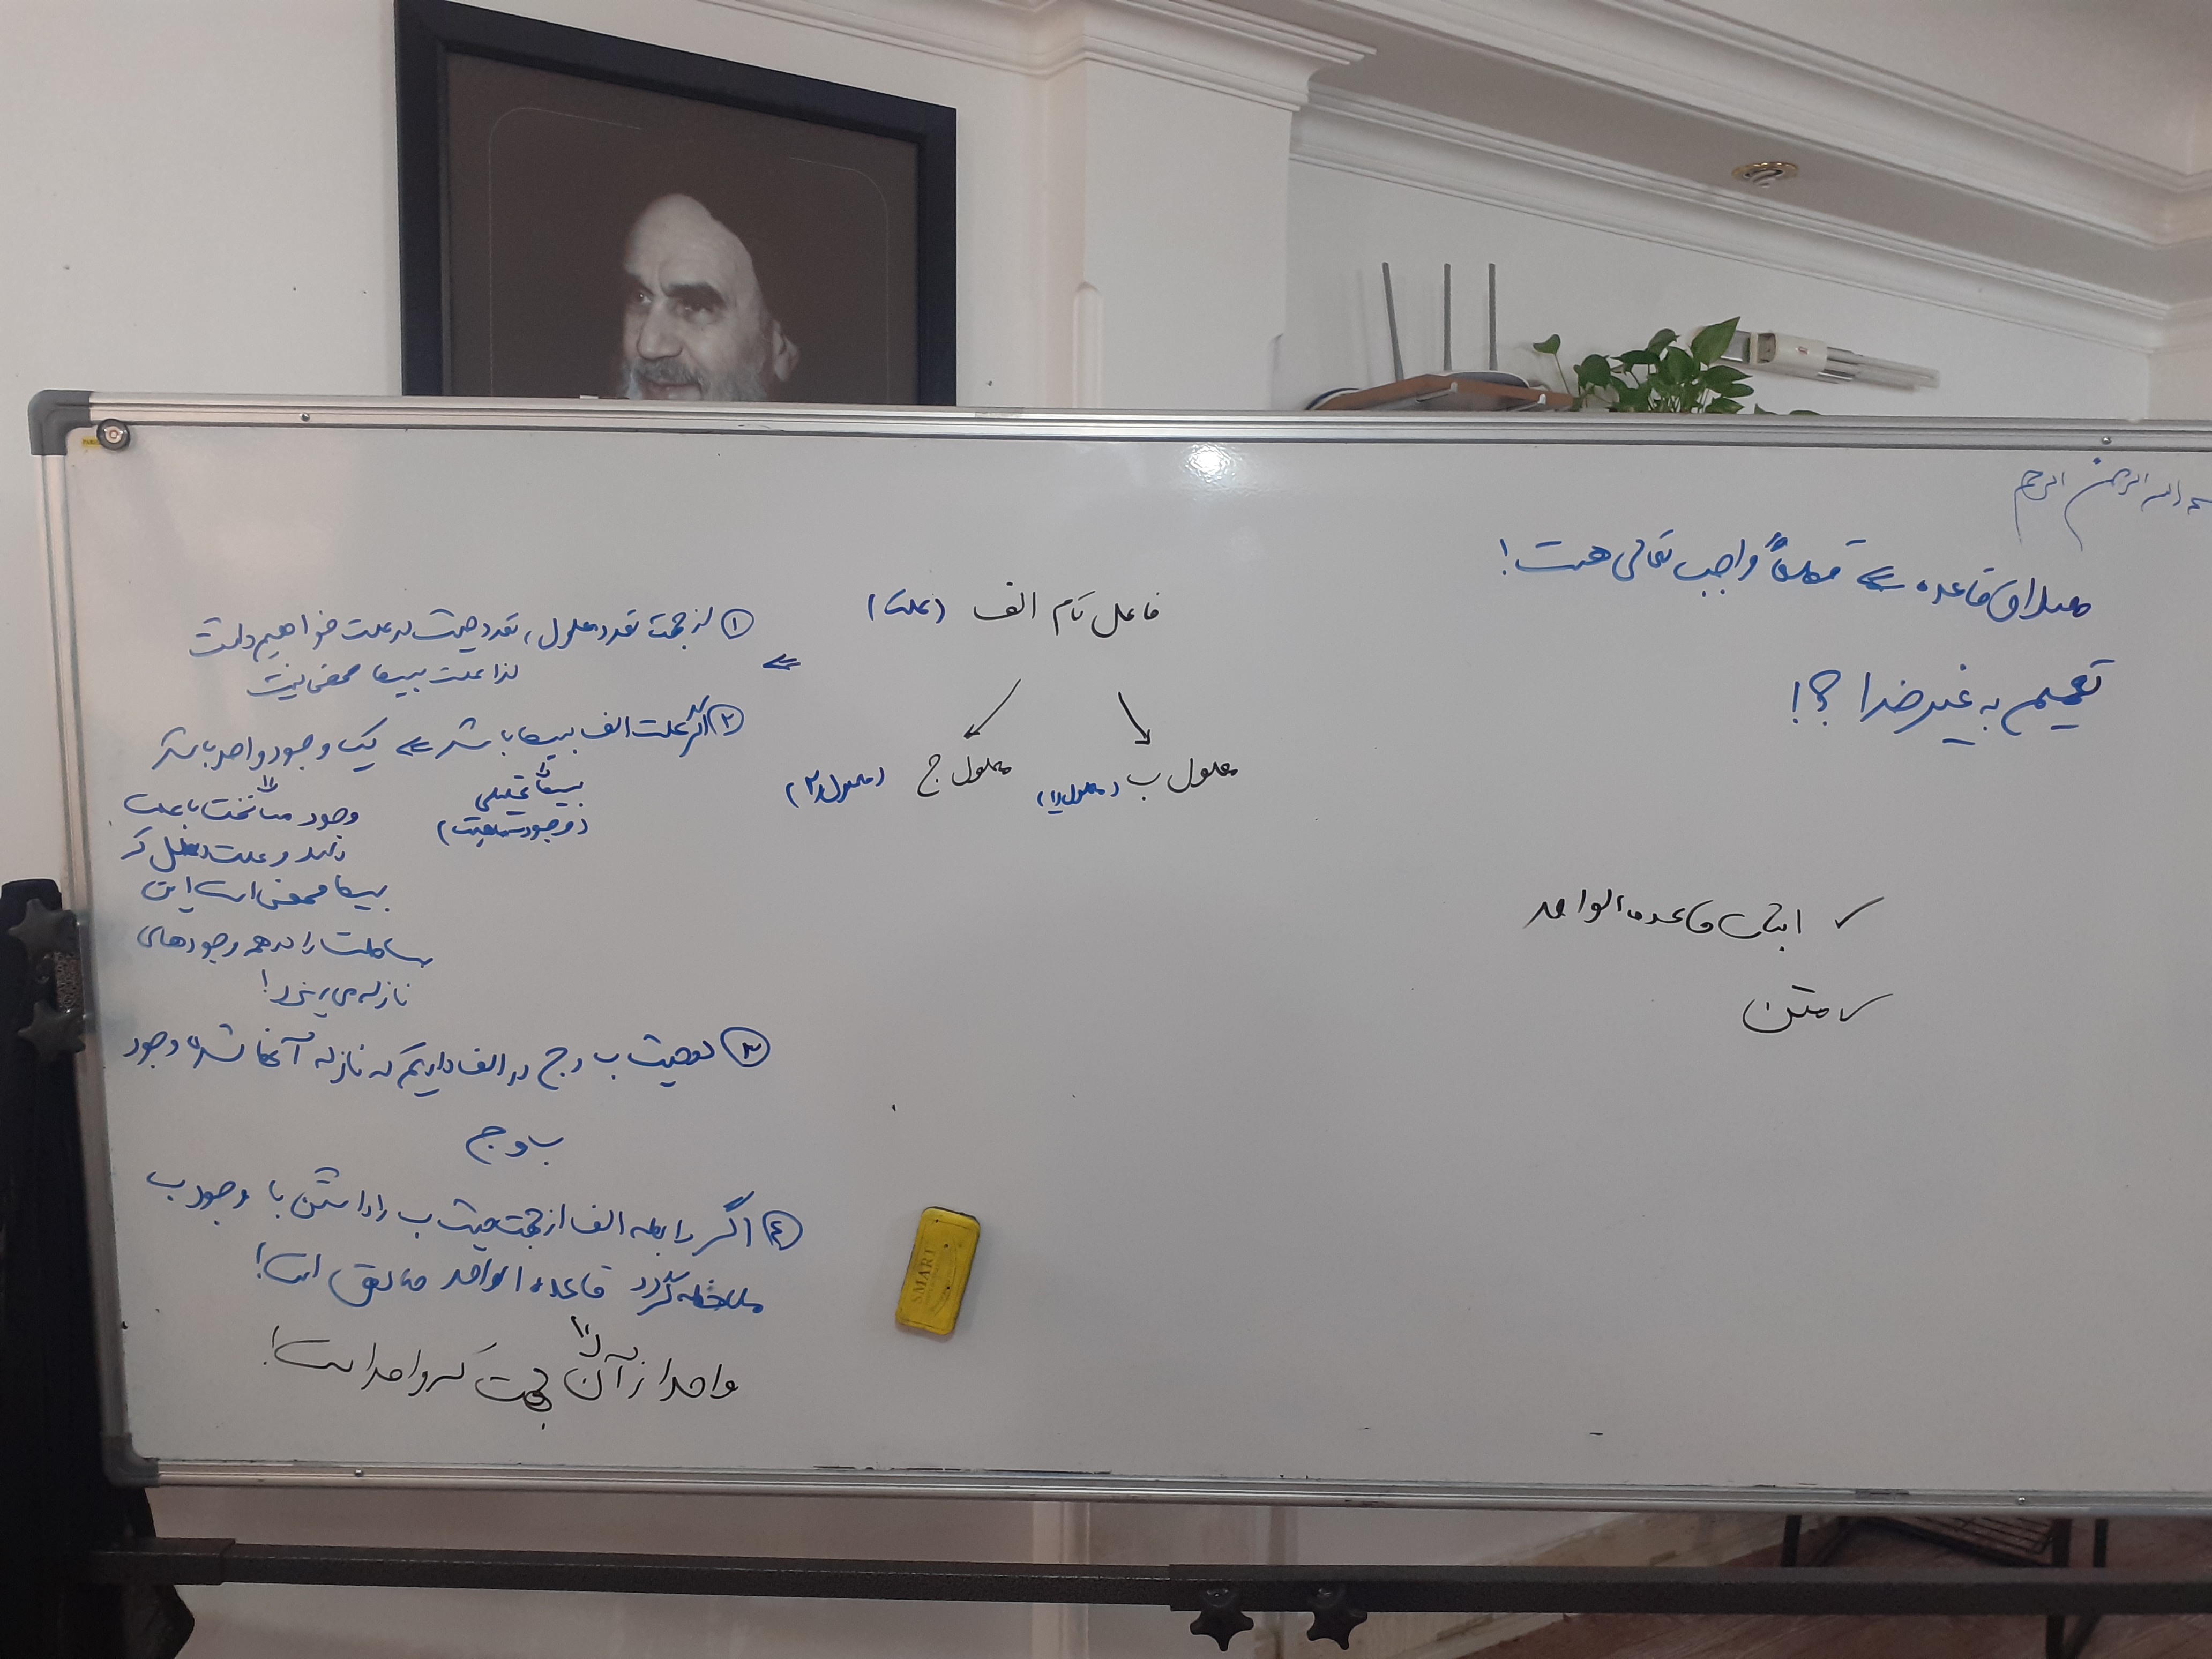 بسم الله الرحمن الرحیم
مصداق قاعده ⇐ قطعاً واجب تعالی هست!
تعمیم به غیر خدا ؟!
✓ اثبات قاعده الواحد
✓ متن
فاعل تام الف (علت)
معلول ب (معلول ۱)
معلول ج (معلول ۲)
⇐
① از جهت تعدد معلول، تعدد حیث در علت خواهیم داشت
لذا علت بسیط محض نیست
② اگر علت الف بسیط باشد ⇐ یک وجود واحد باشد
بسیط
(وجود
وجود مسانخت با علت
دارد و علت العلل که
بسیط محض است این
بساطت را در همه وجودهای
نازله می‌ریزد!
③ دو حیث ب و ج در الف داریم که نازله آنها شده وجود
ب و ج
④ اگر رابطه الف از جهت حیث ب را داشتن با وجود ب
ملاحظه گردد قاعده الواحد صادق است!
واحد از آن جهت که واحد است!
SMART